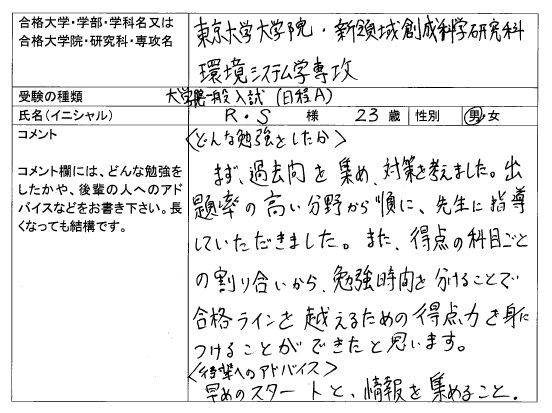 合格大学・学部・学科名又は
合格大学院・研究科・専攻名
東京大学大学院・新領域創成科学研究科
環境システム学専攻
受験の種類
大学院一般入試(日程A)
氏名(イニシャル)
R・S 様 23歳 性別 男・女
コメント
コメント欄には、どんな勉強を
したかや、後輩の人へのアド
バイスなどをお書き下さい。長
くなっても結構です。
〈どんな勉強をしたか〉
まず、過去問を集め、対策を考えました。出
題率の高い分野から順に、先生に指導
していただきました。また、得点の科目ごと
の割り合いから、勉強時間を分けることで
合格ラインを越えるための得点力を身に
つけることができたと思います。
〈後輩へのアドバイス〉
早めのスタートと、情報を集めること。